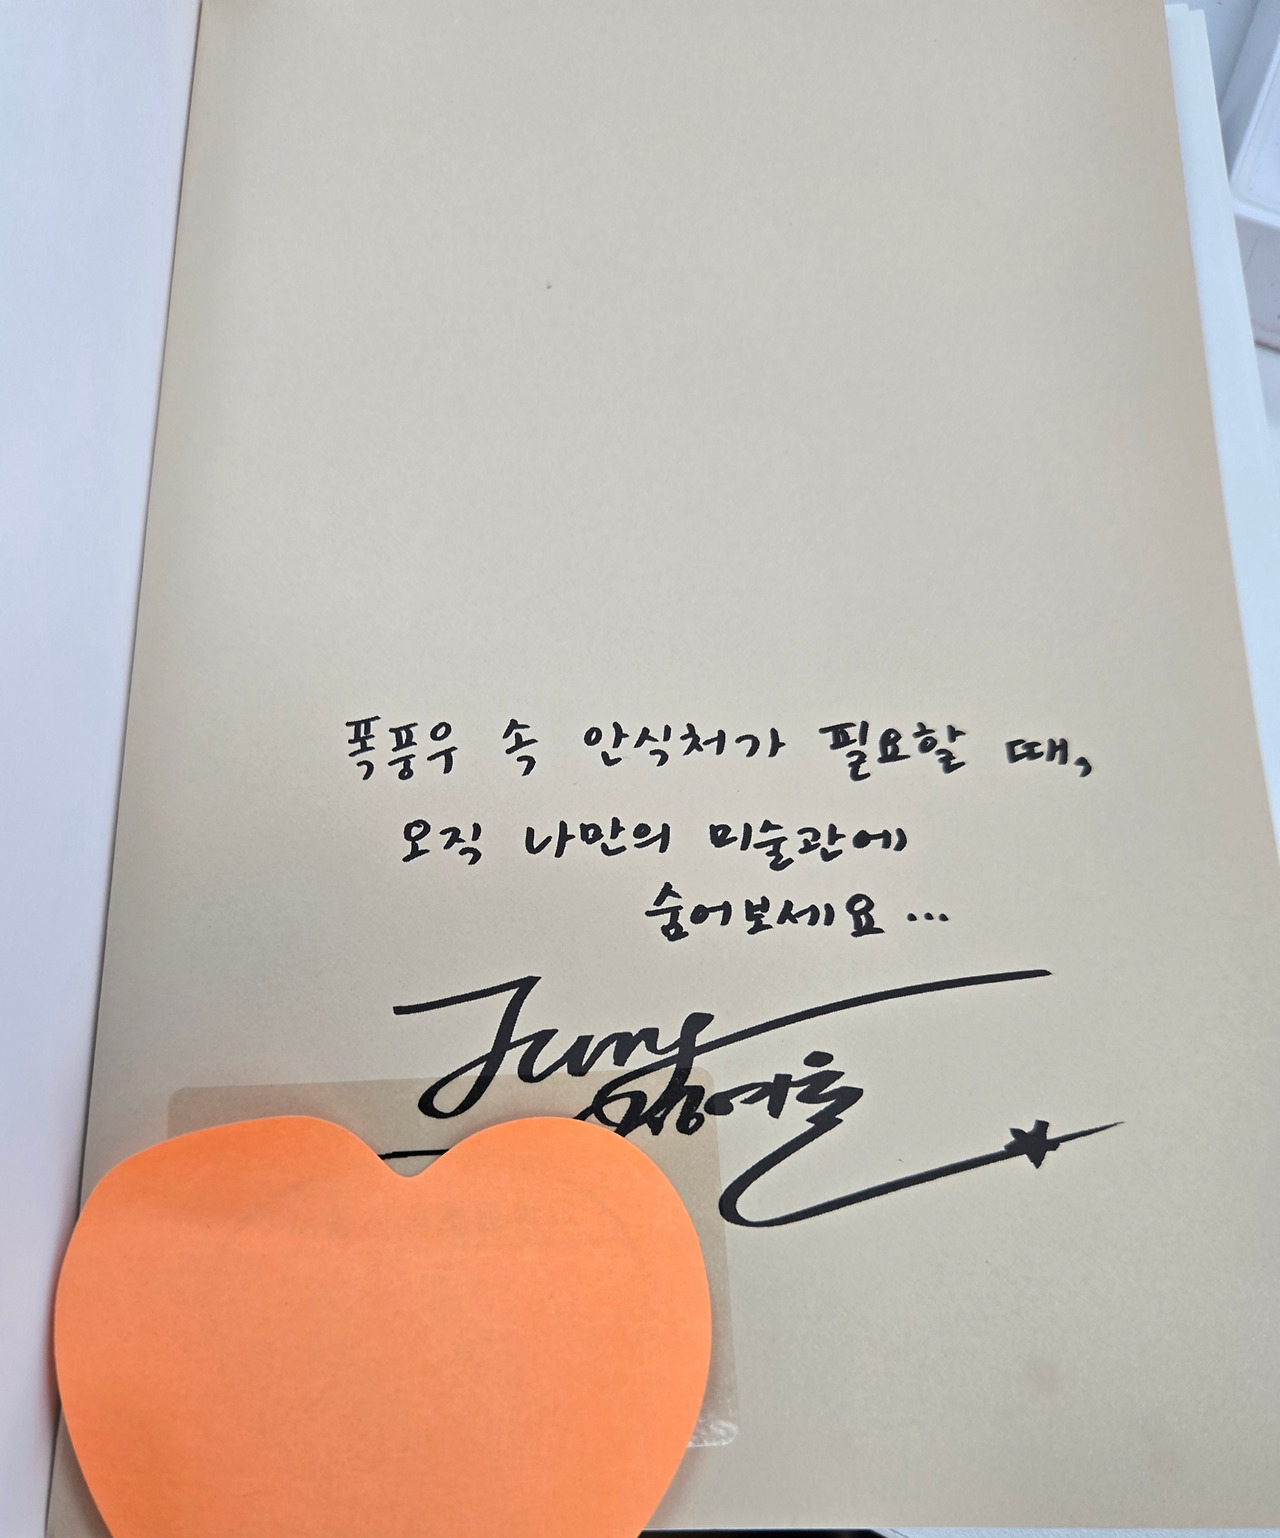 폭풍우 속 안식처가 필요할 때,
오직 나만의 미술관에
숨어보세요 ...
Jung
정여울